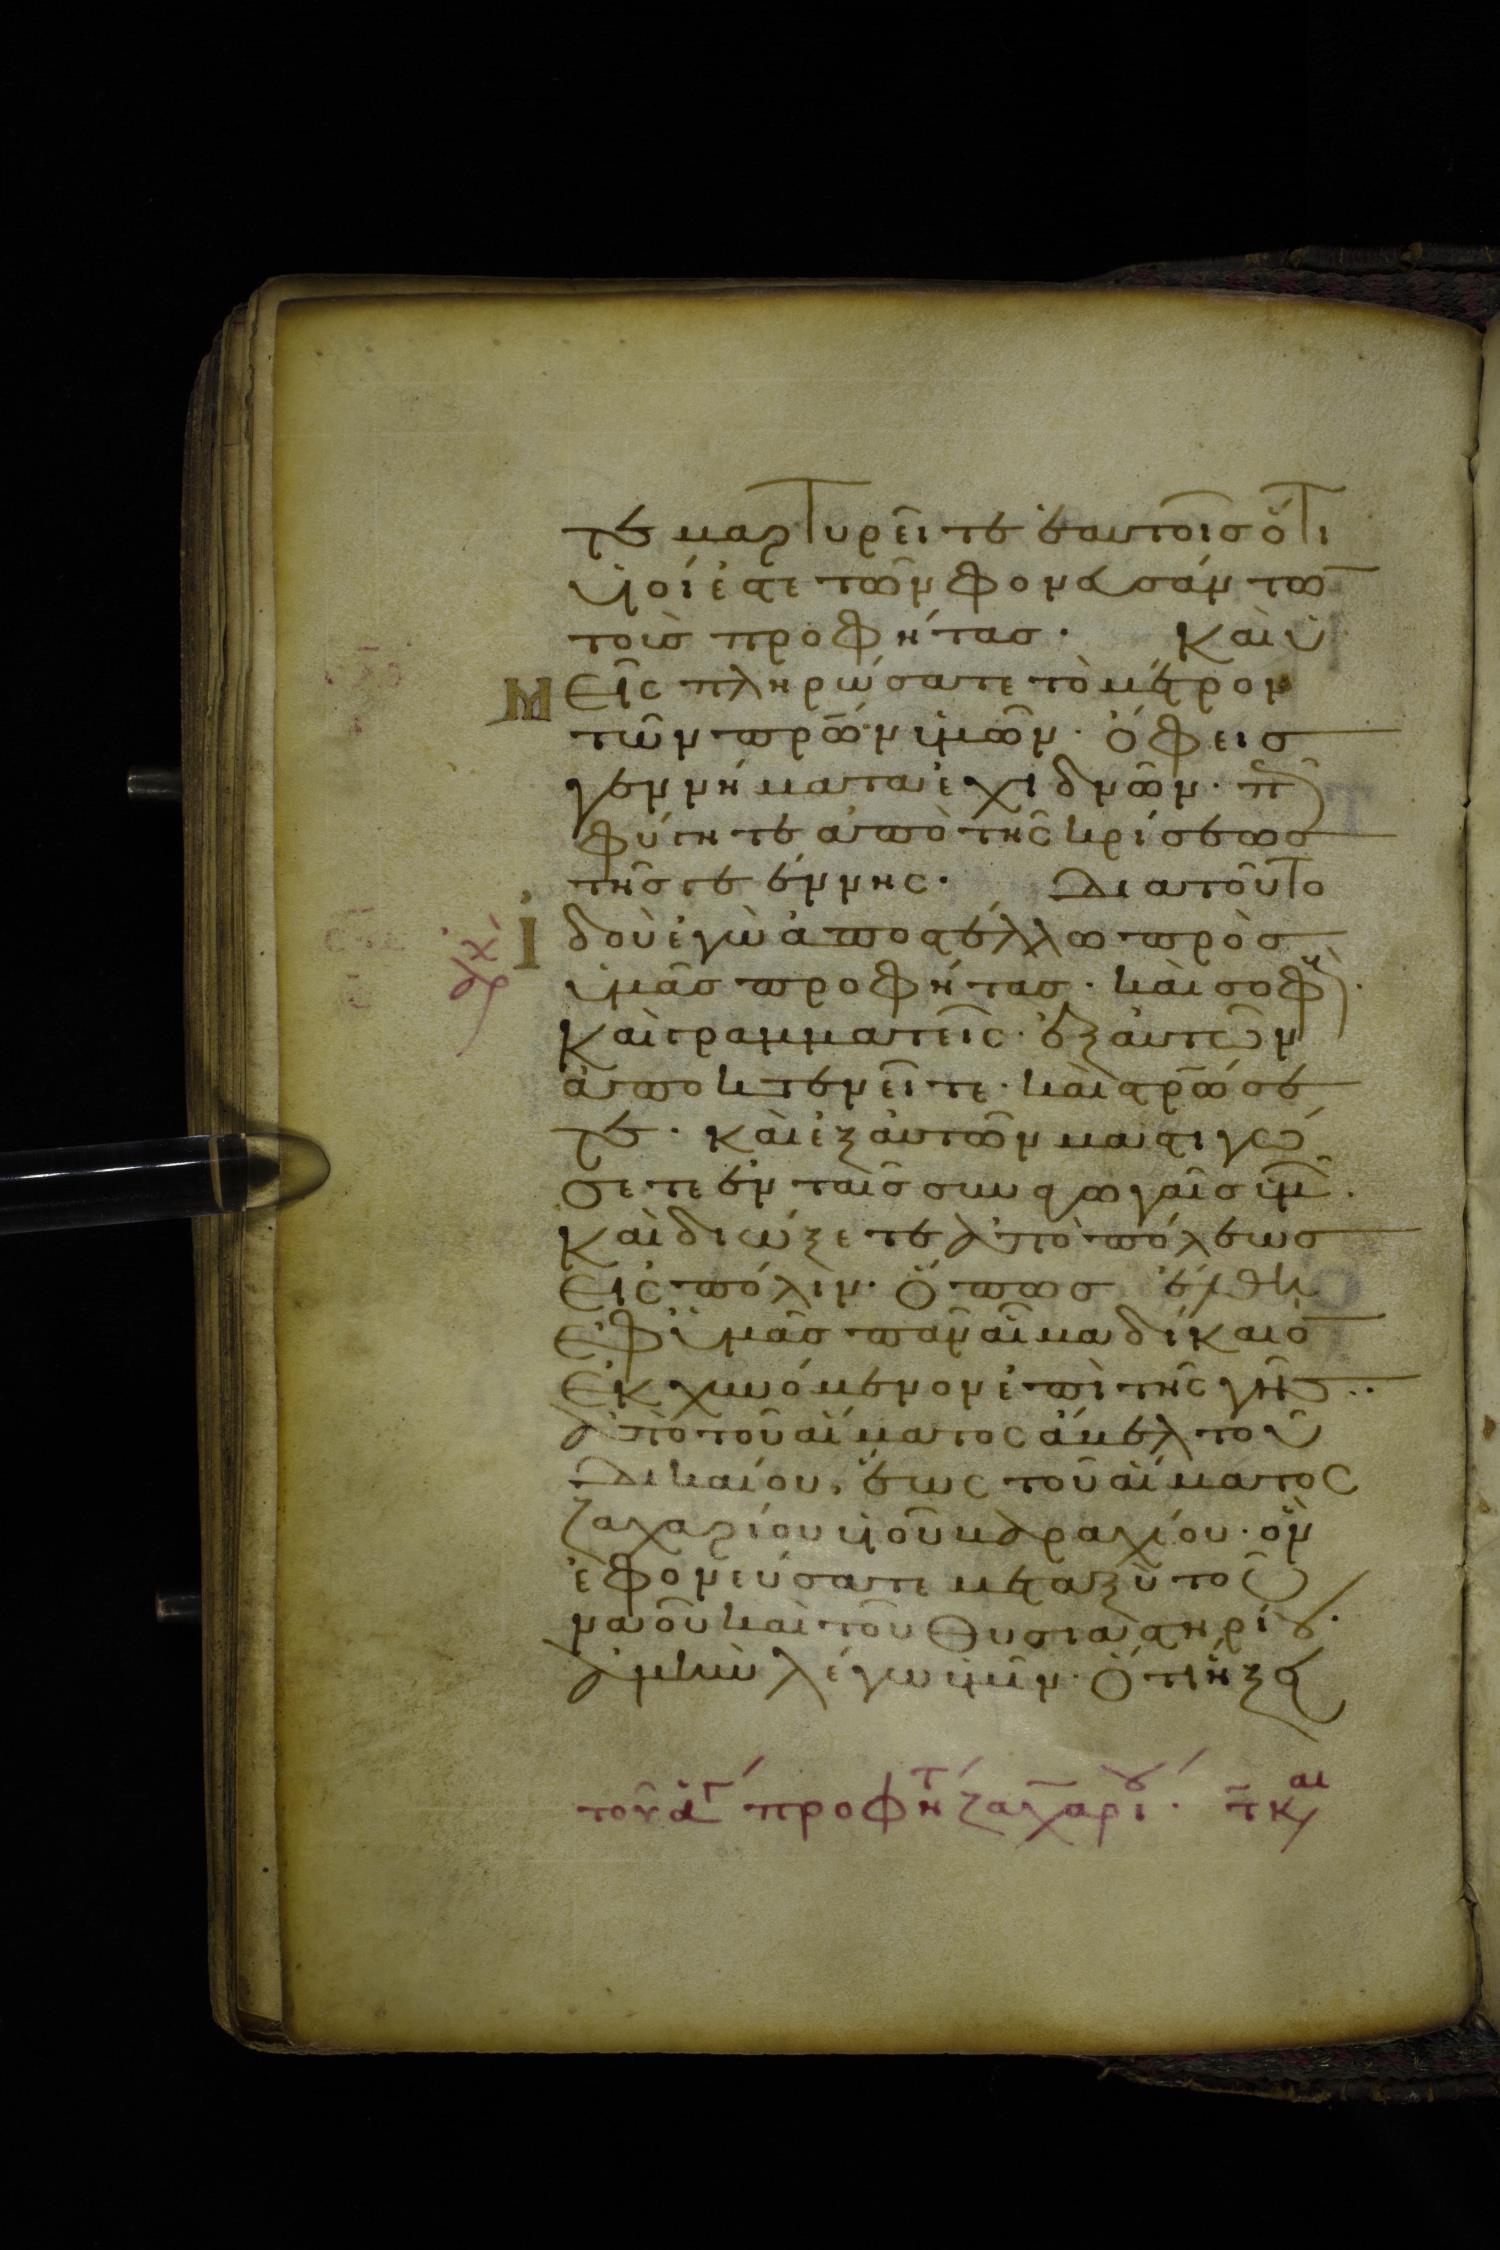 τε μαρτυρεῖτε ἑαυτοῖς ὅτι
υἱοί ἐστε τῶν φονευσάντω̅
τοὺς προφήτας. Καὶ ὑ
μεῖς πληρώσατε τὸ μέτρον
τῶν πρω̅ν ὑμῶν. Ὄφεις
γεννήματα ἐχιδνῶν. πῶ
φύγητε ἀπὸ τῆς κρίσεως
τῆς γεέννης. Διατοῦτο
ἰδοὺ ἐγὼ ἀποστέλλω πρὸς
ὑμᾶς προφήτας. καὶ σοφοὺ.
Καὶ γραμματεῖς. ἐξ αὐτῶν
ἀποκτενεῖτε. καὶ στρω̅σε
τε. καὶ ἐξ αὐτῶν μαστιγώ
σετε ἐν ταῖς συναγωγαῖς ὑμ̅.
Καὶ διώξετε ἀπὸ πόλεως
Εἰς πόλιν. Ὅπως ἔλθη
Ἐφ ὑμᾶς πᾶν αἷμα δίκαιο̅
Ἐκχυνόμενον ἐπὶ τῆς γῆς..
Ἀπὸ τοῦ αἵματος ἄβελ τοῦ
Δικαίου, ἕως τοῦ αἵματος
ζαχαρίου υἱοῦ βαραχίου. ὃν
ἐφονεύσατε μεταξὺ του
ναοῦ καὶ τοῦ θυσιαστηρίου.
Ἀμὴν λέγω ὑμῖν. Ὅτι ἥξει
τοῦ ἁγ προφήτ ζαχαρίου. τ̅ και